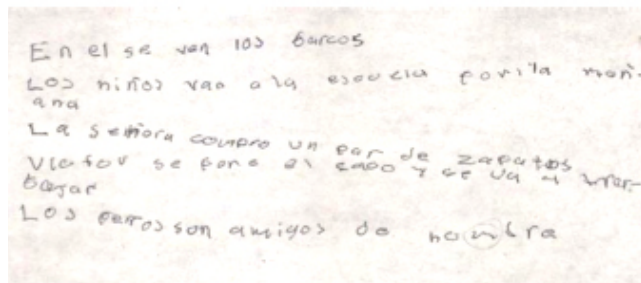 En el se ven los barcos
Los niños van a la escuela por la mañ-
ana
La señora compro un par de zapatos
Victor se pone el capo y se va a
bajar
Los perros son amigos de hombra